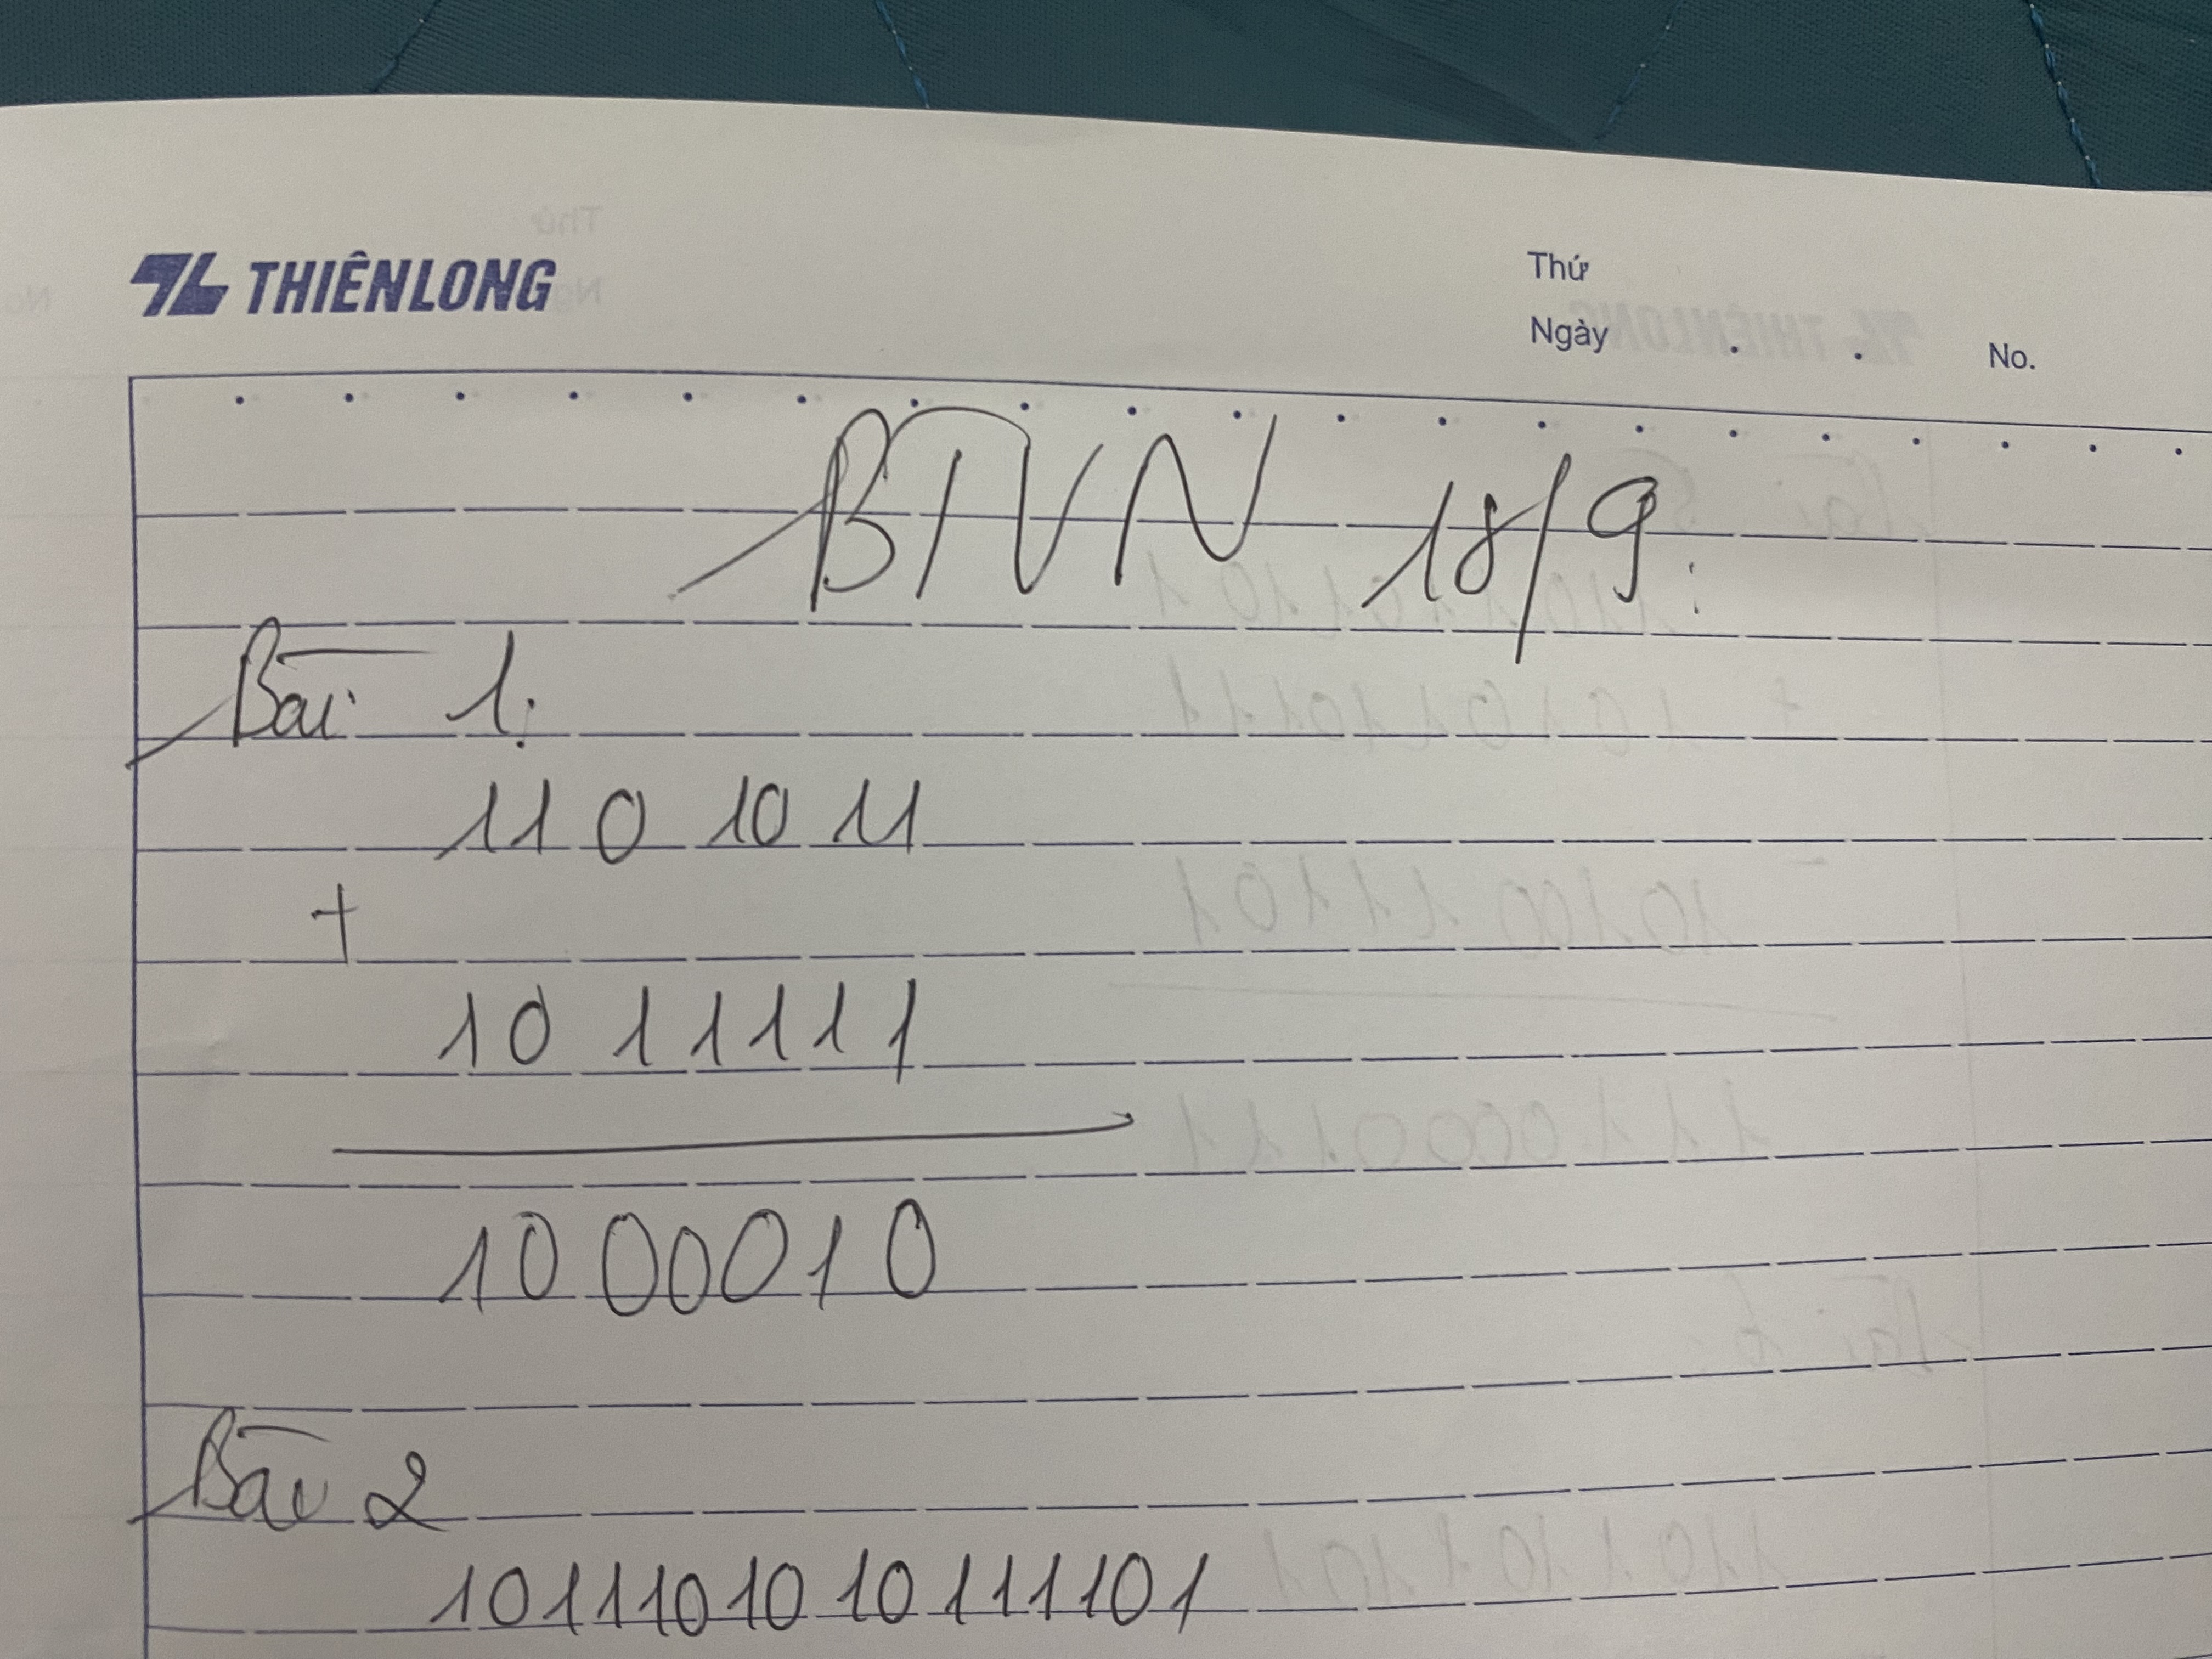 THIÊN LONG
Thứ
Ngày
No.
BTVN 18/9:
Bài 1:
1101011
+
1011111
1000010
Bài 2
101110101010111101